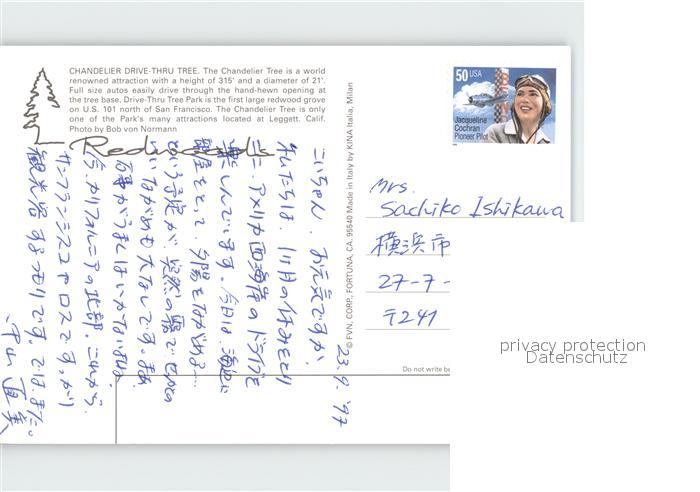 CHANDELIER DRIVE-THRU TREE. The Chandelier Tree is a world
renowned attraction with a height of 315' and a diameter of 21'.
Full size autos easily drive through the hand-hewn opening at
the tree base. Drive-Thru Tree Park is the first large redwood grove
on U.S. 101 north of San Francisco. The Chandelier Tree is only
one of the Park's many attractions located at Leggett. Calif.
Photo by Bob von Normann
Redwoods
23. 9. '97
お元気ですか
私たちは、1ヶ月の休みをとり
アメリカ西海岸のドライブを
楽しんでいます。今日は、海辺に
をとって、夕陽をながめる…
という予定が、突然の霧で
いながめも大なしです。
今、カリフォルニアの北部、これから
サンフランシスコやロスです。
観光客するつもりです。ではまた。
© FVN, CORP., FORTUNA, CA. 95540 Made in Italy by KINA Italia, Milan
50 USA
Jacqueline
Cochran
Pioneer Pilot
Mrs.
Sachiko Ishikawa
横浜市
27-7-
〒241
Do not write be
privacy protection
Datenschutz